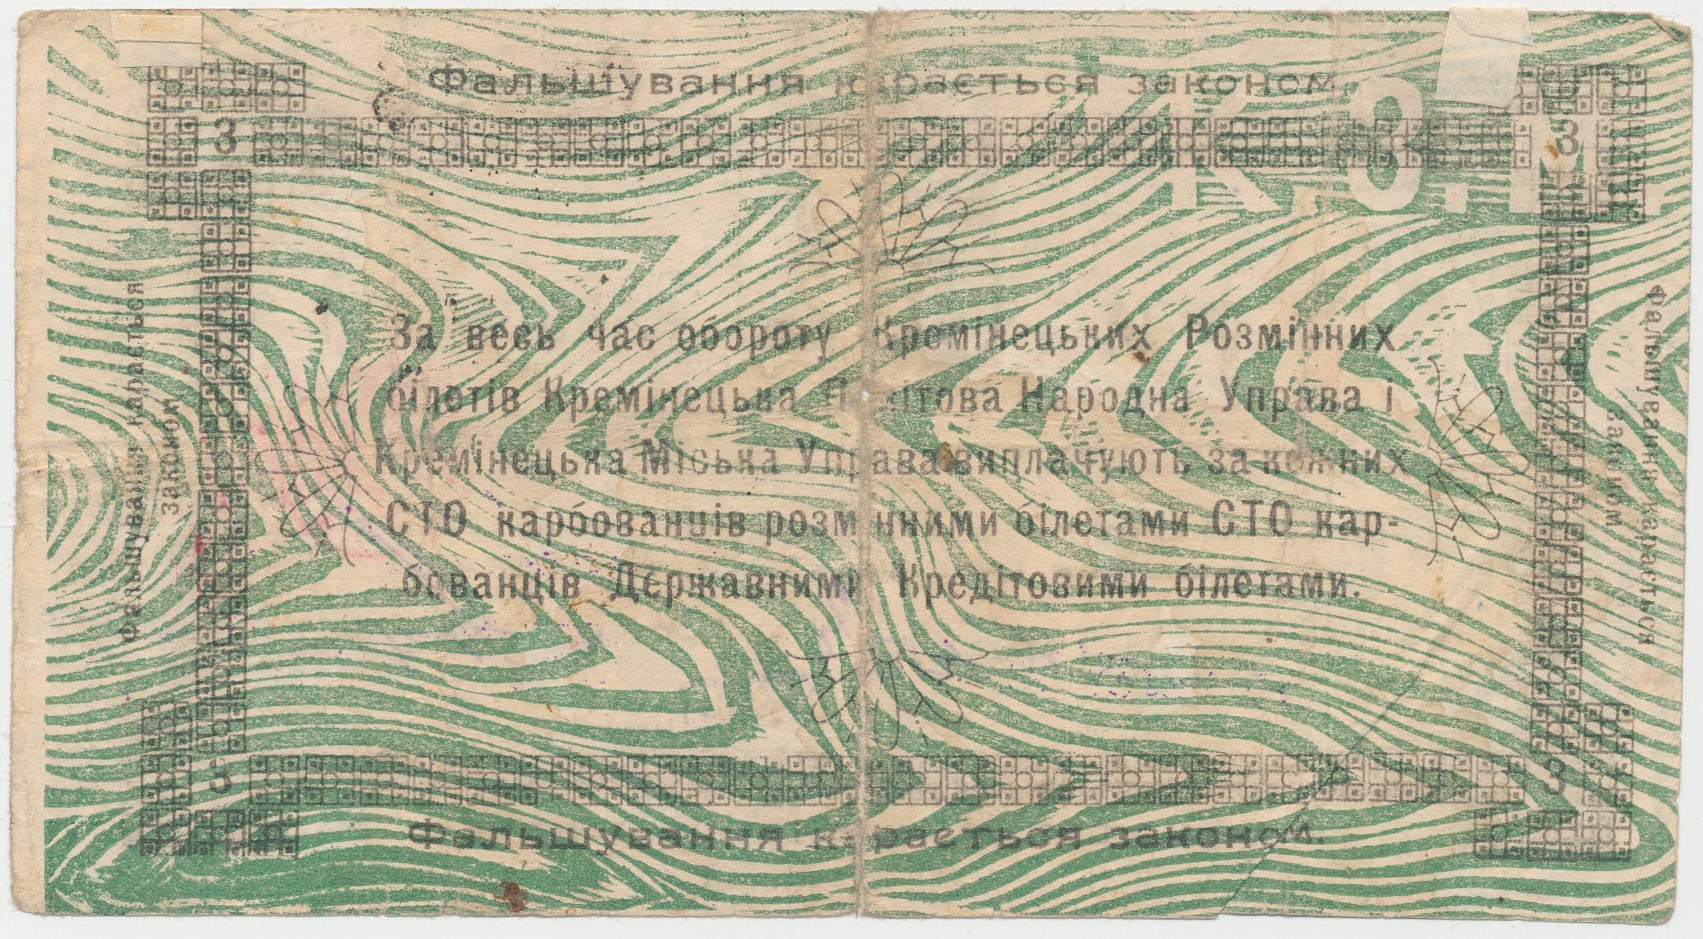 Фальшування карається законом
К.З.П.
3 3
За весь час обороту Кремінецьких Розмінних
білетів Кремінецька Повітова Народна Управа і
Кремінецька Міська Управа виплачують за кожних
СТО карбованців розмінними білетами СТО кар-
бованців Державними Кредітовими білетами.
Фальшування карається
законом
Фальшування карається
законом
3 3
Фальшування карається законом.